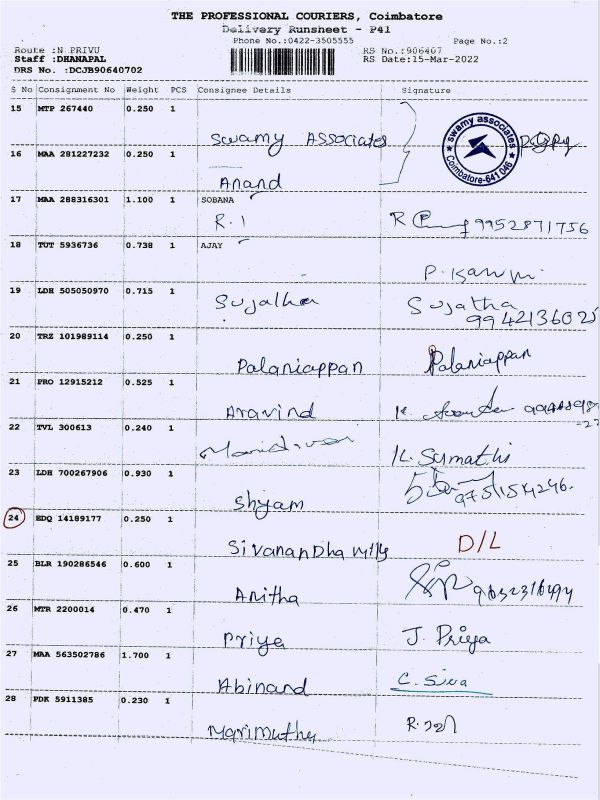 THE PROFESSIONAL COURIERS, Coimbatore
Delivery Runsheet - P41
Phone No.:0422-3505555 Page No.:2
Route :N PRIVU RS No.:906407
Staff :DHANAPAL RS Date:15-Mar-2022
DRS No. :DCJB90640702
S No Consignment No Weight PCS Consignee Details Signature
15 MTP 267440 0.250 1
Swamy Associates
swamy associates
Coimbatore-641 046
16 MAA 281227232 0.250 1
Anand
17 MAA 288316301 1.100 1 SOBANA
R. 9952871756
18 TUT 5936736 0.738 1 AJAY
P.
19 LDH 505050970 0.715 1
Sujatha Sujatha
20 TRZ 101989114 0.250 1
Palaniappan Palaniappan
21 PRO 12915212 0.525 1
Aravind K.
22 TVL 300613 0.240 1
K. Sumathi
23 LDH 700267906 0.930 1
Shyam
24 EDQ 14189177 0.250 1
D/L
25 BLR 190286546 0.600 1
Anitha
26 MTR 2200014 0.470 1
Priya J. Priya
27 MAA 563502786 1.700 1
Abinand C. Siva
28 PDK 5911385 0.230 1
Marimuthu R.